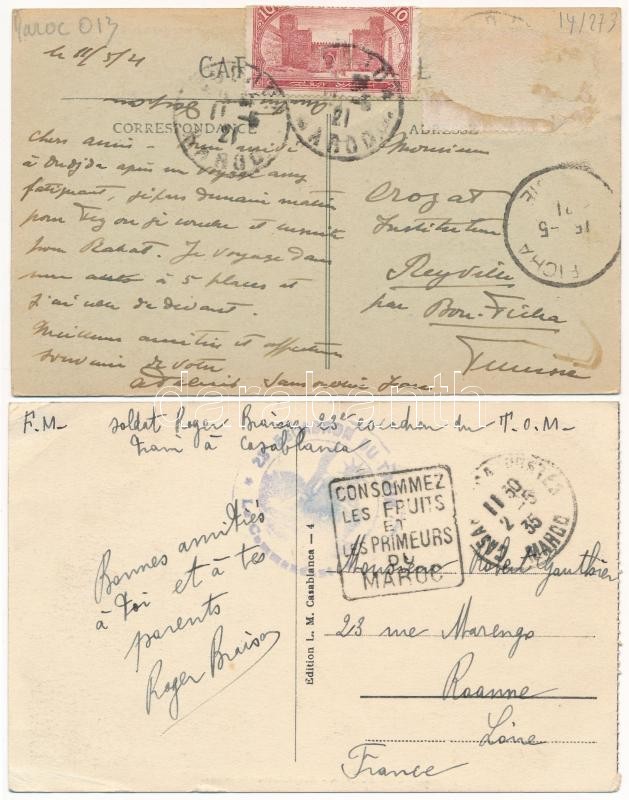 Maroc 013
14/273
le 11/5/21
CARTE
10 10
CORRESPONDANCE
ADRESSE
MAROC
21
MAROC
Chers amis
à Oudjda après un voyage assez
fatigant, je pars demain matin
pour Fez où je couche et ensuite
pour Rabat. Je voyage dans
une auto à 5 places et
j'ai celle de devant.
Meilleures amitiés et affectueux
souvenir de votre
Monsieur
Crozat
Instituteur
Reyville
par Bou-Ficha
Tunisie
15 -5
21
FICHA
darabanth
F.M- Soldat Roger Braison 23er escadron du T.O.M-
Train à Casablanca
CONSOMMEZ
LES FRUITS
ET
LES PRIMEURS
DU
MAROC
CASABLANCA POSTES
11 30
2 -5
35
MAROC
Bonnes amitiés
à toi et à tes
parents
Roger Braison
Edition L. M. Casablanca - 4
Monsieur Robert Gauthier
23 rue Marengo
Roanne
Loire
France